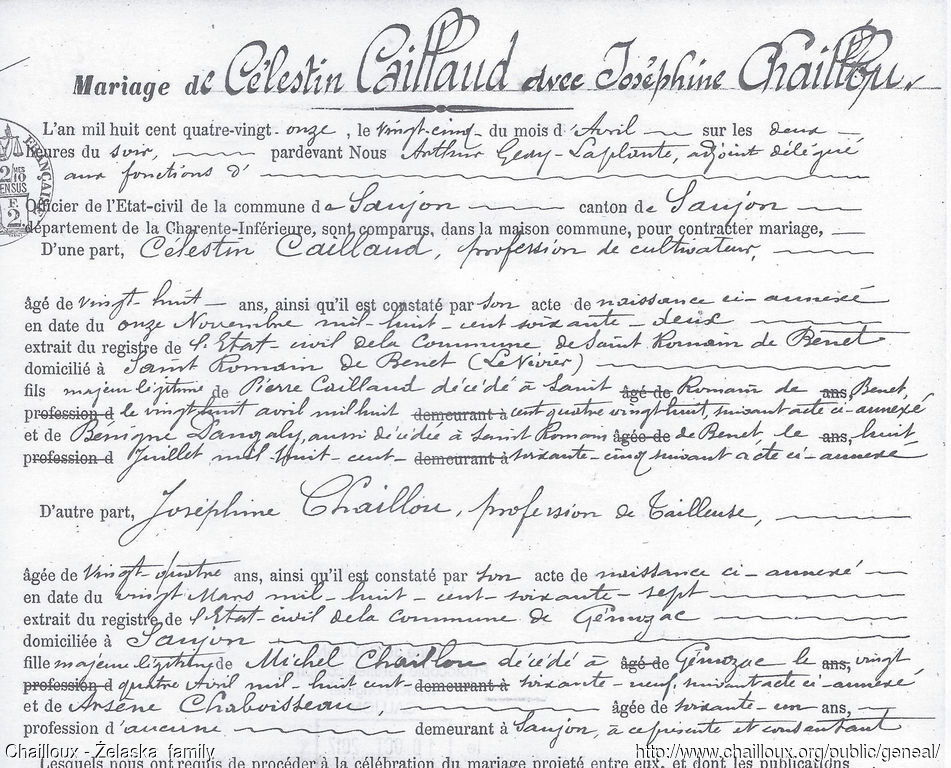 Mariage de Célestin Caillaud avec Joséphine Chaillou.
L'an mil huit cent quatre-vingt-onze, le vingt-cinq du mois d'Avril sur les deux
heures du soir, pardevant Nous Arthur Geay-Laplante, adjoint délégué
aux fonctions d'
Officier de l'Etat-civil de la commune de Saujon canton de Saujon
département de la Charente-Inférieure, sont comparus, dans la maison commune, pour contracter mariage,
D'une part, Célestin Caillaud, profession de cultivateur,
âgé de vingt-huit ans, ainsi qu'il est constaté par son acte de naissance ci-annexé
en date du onze Novembre mil-huit-cent soixante-deux
extrait du registre de l'Etat-civil de la Commune de Saint Romain de Benet
domicilié à Saint Romain de Benet
fils majeur légitime de Pierre Caillaud décédé à Saint âgé de Romain de ans, Benet,
profession d le vingt huit avril mil huit demeurant à cent quatre vingt huit, suivant acte ci-annexé
et de Bénigne aussi décédée à Saint Romain âgée de de Benet, le ans, huit
profession d Juillet mil-huit-cent- demeurant à soixante-cinq suivant acte ci-annexé
D'autre part, Joséphine Chaillou, profession de Tailleuse,
âgée de vingt-quatre ans, ainsi qu'il est constaté par son acte de naissance ci-annexé
en date du vingt Mars mil-huit-cent-soixante-sept
extrait du registre de l'Etat-civil de la Commune de Gémozac
domiciliée à Saujon
fille majeure légitime de Michel Chaillou décédé à âgé de Gémozac le ans, vingt
profession d quatre Avril mil-huit cent- demeurant à soixante-neuf, suivant acte ci-annexé
et de Arsène Chaboisseau, âgée de soixante-un ans,
profession d'aucune demeurant à Saujon, à ce présente et consentant
Lesquels nous ont requis de procéder à la célébration du mariage projeté entre eux, et dont les publications
Chailloux - Želaska family
http://www.chailloux.org/public/geneal/